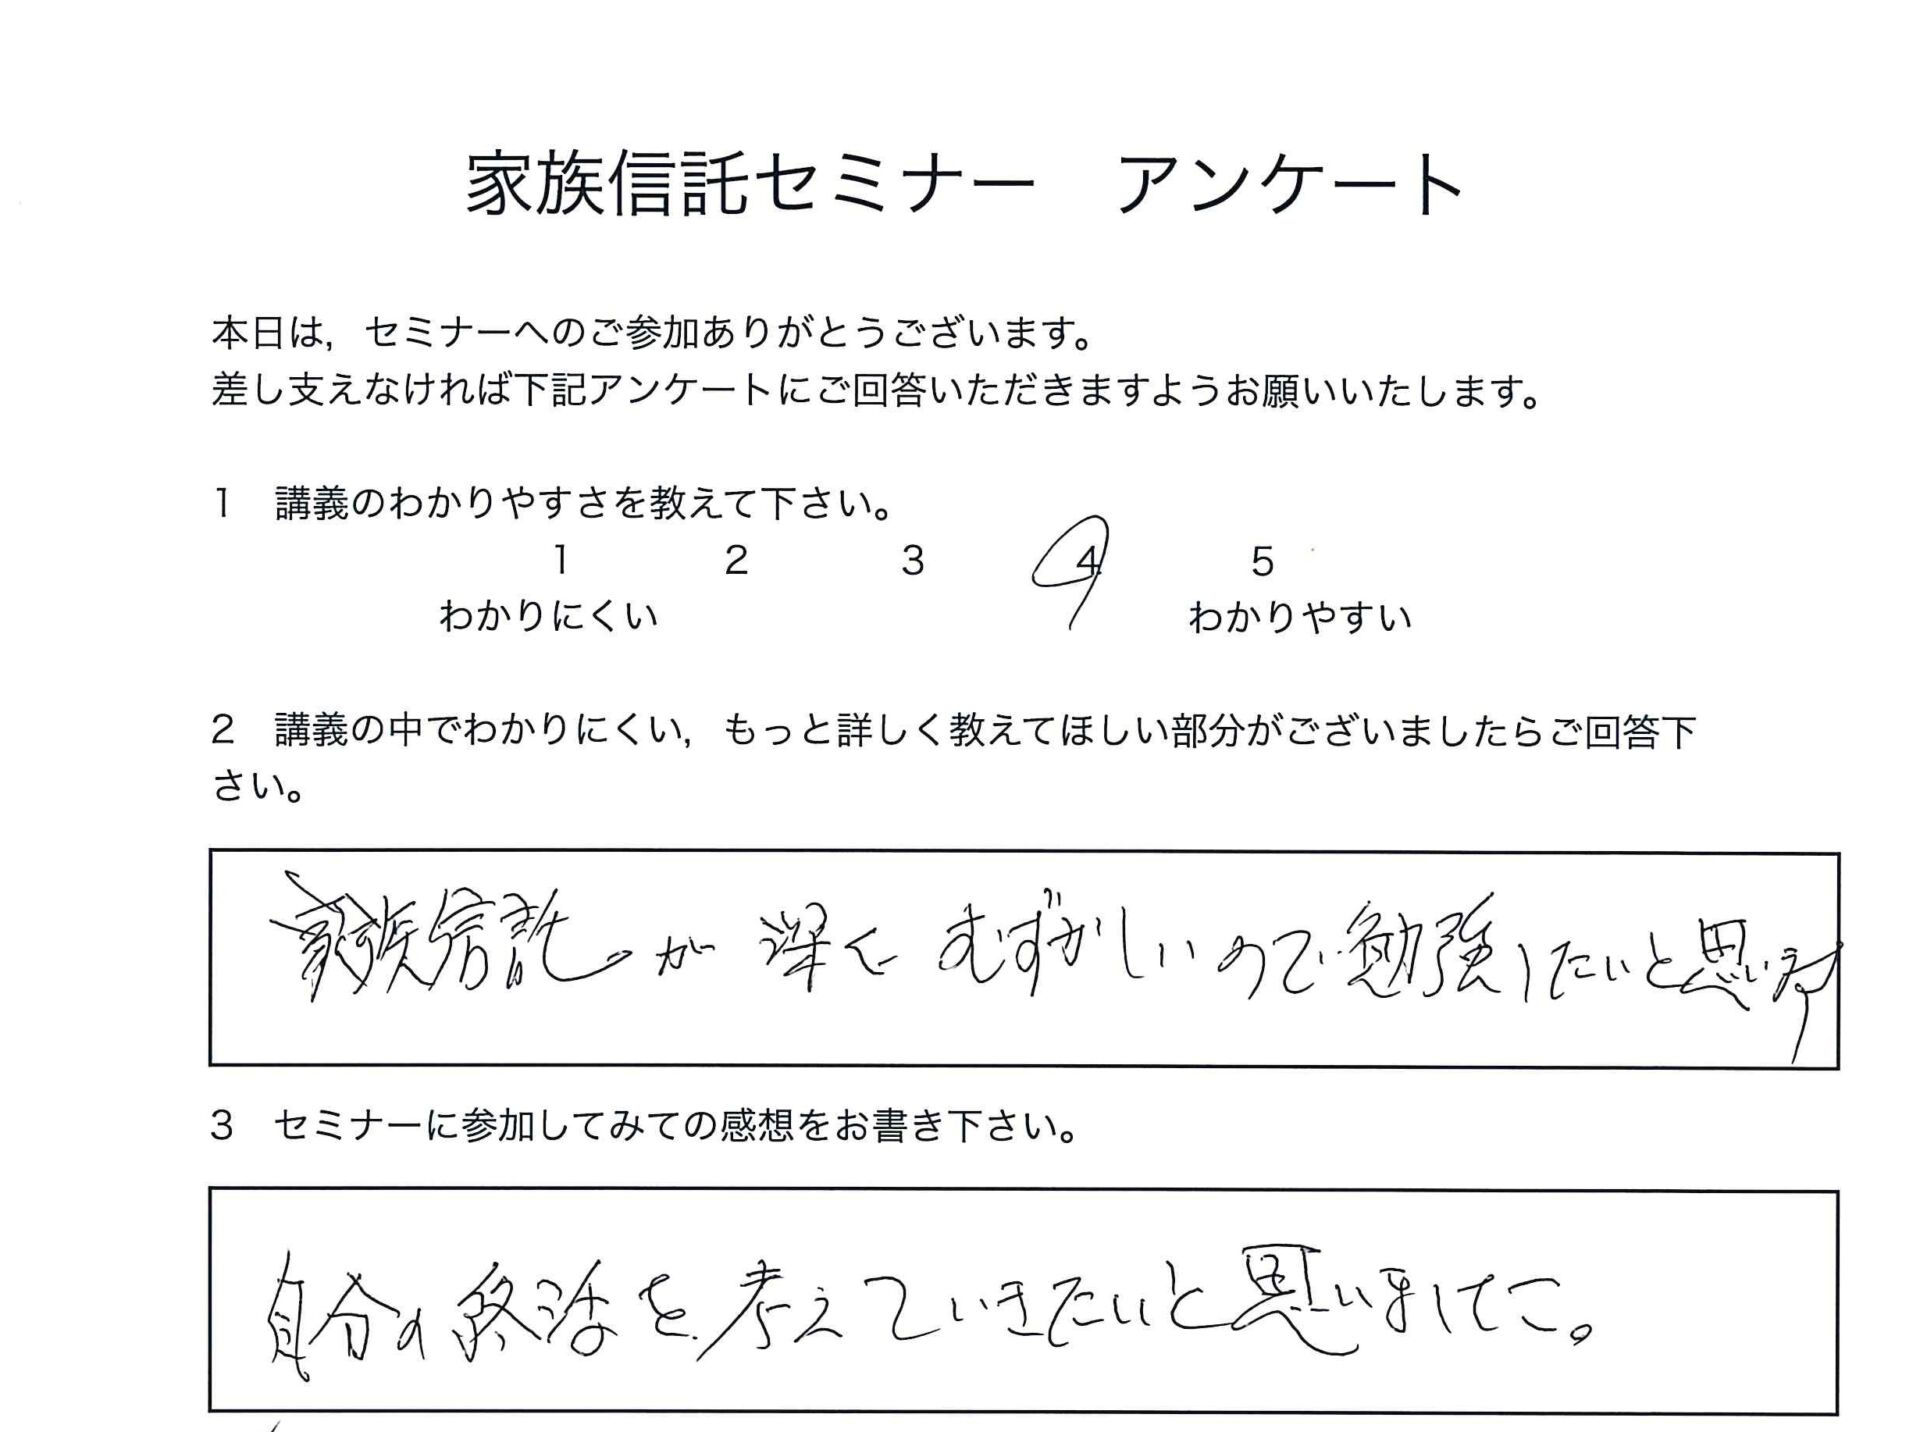 家族信託セミナー　アンケート
本日は，セミナーへのご参加ありがとうございます。
差し支えなければ下記アンケートにご回答いただきますようお願いいたします。
1　講義のわかりやすさを教えて下さい。
1 2 3 4 5
わかりにくい わかりやすい
2　講義の中でわかりにくい，もっと詳しく教えてほしい部分がございましたらご回答下
さい。
家族信託が深くむずかしいので勉強したいと思います
3　セミナーに参加してみての感想をお書き下さい。
自分の終活を考えていきたいと思いました。